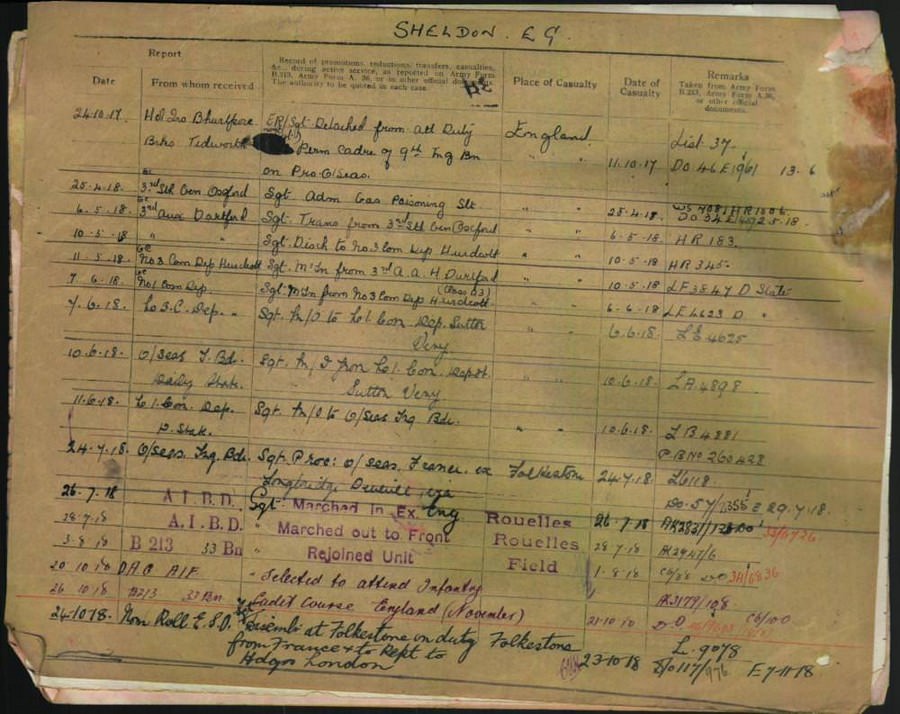 SHELDON. E G.
Report
Record of promotions, reductions, transfers, casualties, &c., during active service, as reported on Army Form B.213, Army Form A. 36, or in other official documents. The authority to be quoted in each case.
Remarks
Taken from Army Form B.213, Army Form A.36, or other official documents.
Date From whom received Place of Casualty Date of Casualty
24.10.17. Hd Qrs Bhurtpore ER/Sgt Detached from att Duty England List 37.
Brks Tidworth Perm Cadre of 9th Tng Bn " " 11.10.17 DO 46 E 1961 13. 6
on Pro. O/Seas.
25.4.18. 3rd Sth Gen Oxford Sgt Adm Gas Poisoning Slt " " 25.4.18.
6.5.18. 3rd Aux Dartford Sgt. Trans from 3rd Sth Gen Oxford " " 6.5.18. HR 183.
10.5.18 " " Sgt. Disch to No 3 Com Dep Hurdcott " " 10.5.18 HR 345.
11.5.18 No 3 Com Dep Hurdcott Sgt. M/In from 3rd A.A.H Dartford " " 10.5.18 LF 3847 D State
7.6.18. No 1 Com Dep. Sgt M/In from No 3 Com Dep Hurdcott " " 6.6.18 LF 4623 D "
7.6.18. Sgt. M/O to No 1 Con. Dep. Sutton
Veny 6.6.18. 4625
10.6.18. O/Seas T. Bde. Sgt. M/I from No 1. Con. Depot " " 10.6.18. LA 4898
Daily State. Sutton Veny
11.6.18. No 1. Con. Dep. Sgt M/O to O/Seas Tng Bde. " " 10.6.18 LB 4881
D. State. P B No 260428
24.7.18. O/Seas. Tng Bde. Sgt. Proc: O/Seas. France. ex Folkestone 24.7.18. 26118.
Longbridge Deverill via
DO. 57/1355 E 29.7.18.
26.7.18 A.I.B.D. Sgt. Marched In Ex. Eng Rouelles 26.7.18
28.7.18 A.I.B.D. " Marched out to Front Rouelles 28.7.18 AK2947/6
3.8.18 B 213 33 Bn " Rejoined Unit Field 1.8.18
20.10.18 DAG AIF " Selected to attend Infantry
26.10.18 B213 33 Bn Cadet Course England (November) 21.10.18
24.10.18. Nom Roll E.S.O. Disemb at Folkestone on duty Folkestone L. 9078
from France & to Rept to 23.10.18 DO 117/976 E 7.11.18
Hdqrs London